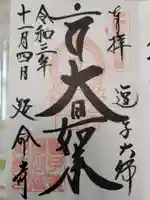 奉拝
逗子大師
大日如来
令和三年
十一月四日
延命寺